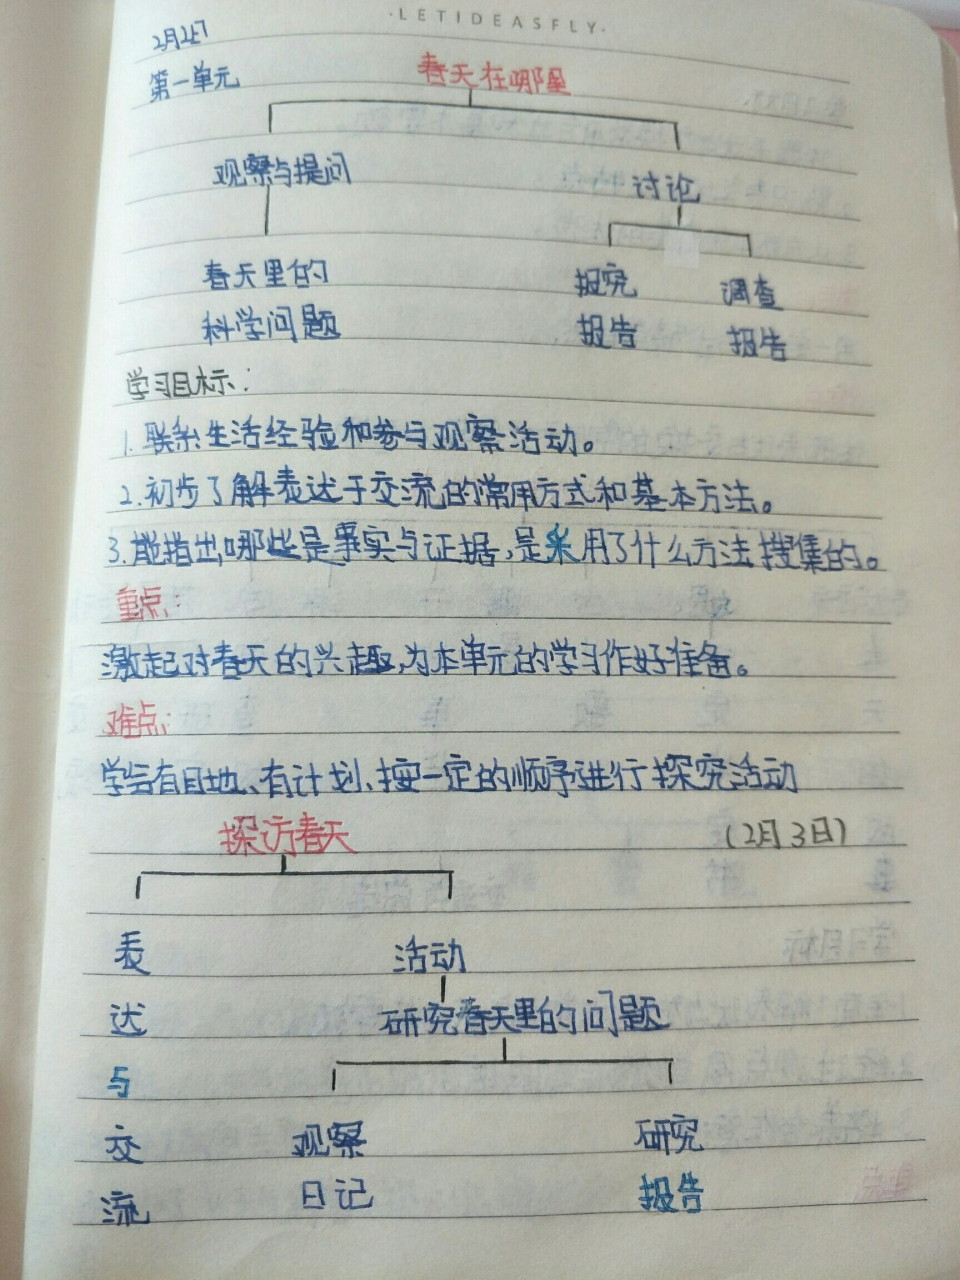 ·LETIDEASFLY·
2月2日
第一单元
春天在哪里
观察与提问
讨论
春天里的 探究 调查
科学问题 报告 报告
学习目标:
1.联系生活经验和参与观察活动。
2.初步了解表达于交流的常用方式和基本方法。
3.能指出,哪些是事实与证据,是采用了什么方法搜集的。
重点:
激起对春天的兴趣,为本单元的学习作好准备。
难点:
学会有目地、有计划、按一定的顺序进行探究活动
探访春天 (2月3日)
表 活动
达 研究春天里的问题
与
交 观察 研究
流 日记 报告